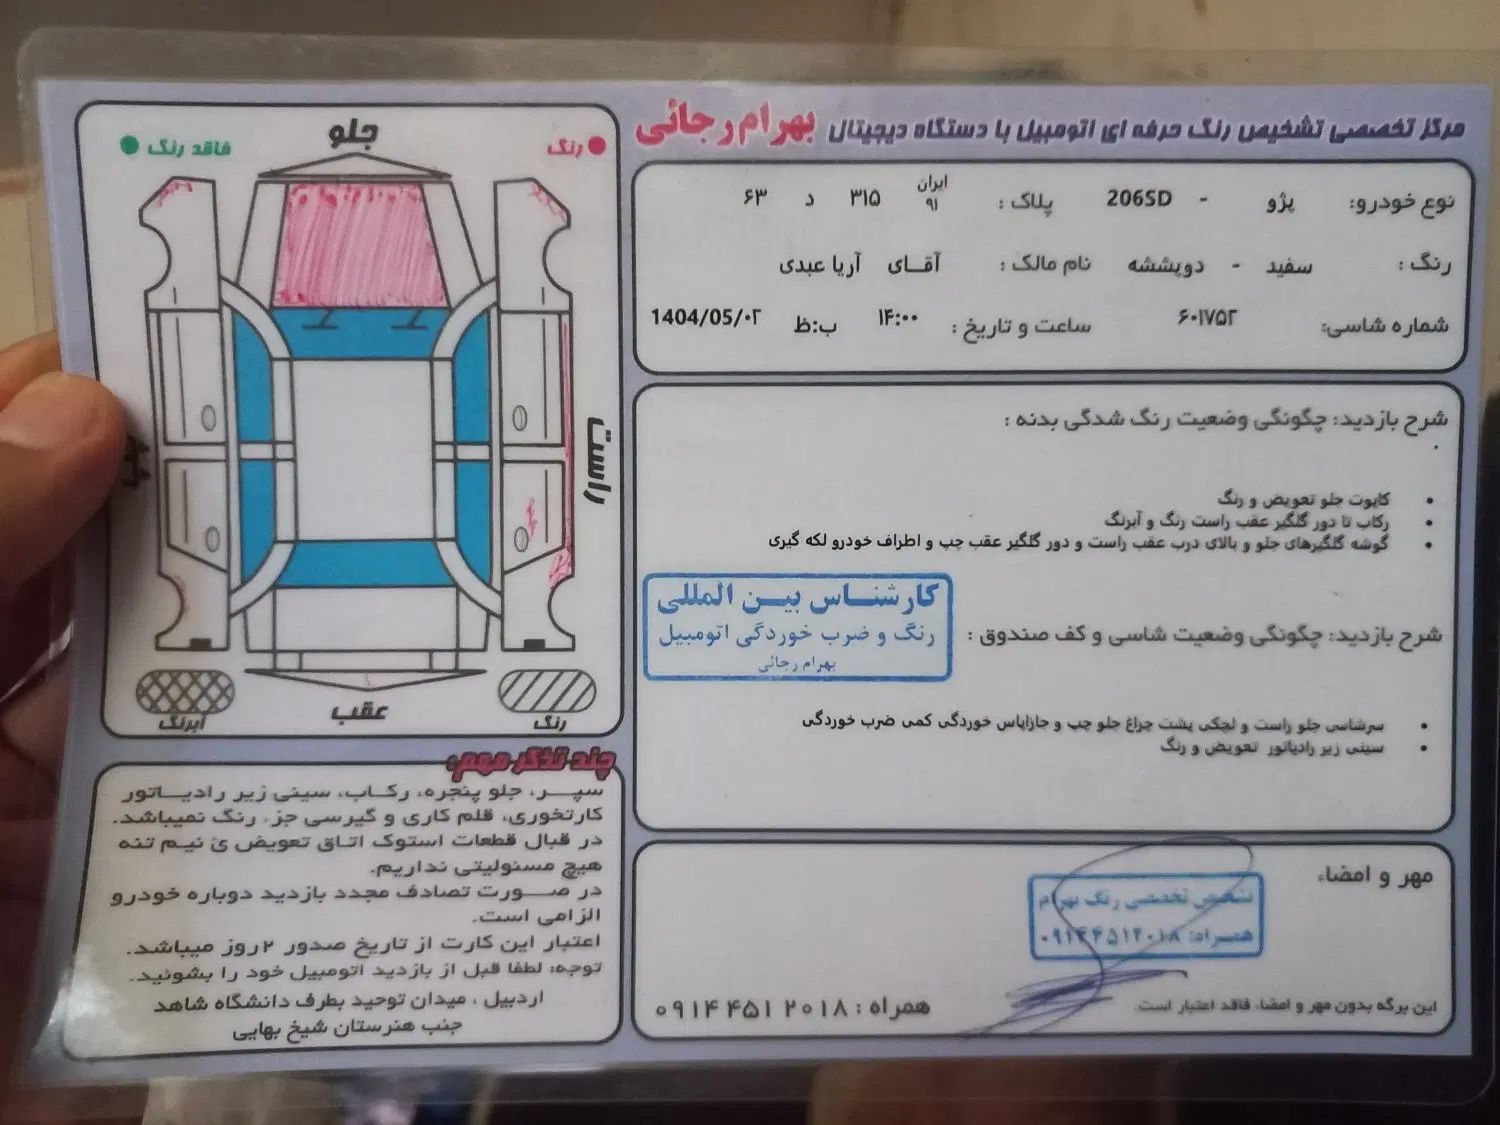 مرکز تخصصی تشخیص رنگ حرفه ای اتومبیل با دستگاه دیجیتال بهرام رجائی
نوع خودرو: پژو - 206SD پلاک : ایران ۹۱ ۳۱۵ د ۶۳
رنگ : سفید - دوپششه نام مالک : آقـای آریا عبدی
شماره شاسی: ۶۰۱۷۵۲ ساعت و تاریخ : ۱۴:۰۰ ب:ظ 1404/05/۰۲
شرح بازدید: چگونگی وضعیت رنگ شدگی بدنه :
• کاپوت جلو تعویض و رنگ
• رکاب تا دور گلگیر عقب راست رنگ و آبرنگ
• گوشه گلگیرهای جلو و بالای درب عقب راست و دور گلگیر عقب چپ و اطراف خودرو لکه گیری
کارشنـاس بیـن المللی
رنگ و ضرب خوردگی اتومبیل
بهرام رجائی
شرح بازدید: چگونگی وضعیت شاسی و کف صندوق :
• سرشاسی جلو راست و لچکی پشت چراغ جلو چپ و جازاپاس خوردگی کمی ضرب خوردگی
• سینی زیر رادیاتور تعویض و رنگ
مهر و امضاء
تشخیص تخصصی رنگ بهرام
همـراه: ۰۹۱۴۴۵۱۲۰۱۸
این برگه بدون مهر و امضاء فاقد اعتبار است.
همراه : ۰۹۱۴ ۴۵۱ ۲۰۱۸
جلو
رنگ
فاقد رنگ
راست
عقب
رنگ
آبرنگ
چند تذکر مهم:
سپـر، جلو پنجره، رکـاب، سینی زیر رادیـاتور
کارتخوری، قلم کاری و گیرسی جزء رنگ نمیباشد.
در قبال قطعات استوک اتـاق تعویض ی نیـم تنه
هیچ مسئولیتی نداریم.
در صـورت تصادف مجدد بازدید دوباره خودرو
الزامی است.
اعتبار این کارت از تاریخ صدور ۲ روز میباشد.
توجه: لطفا قبل از بازدید اتومبیل خود را بشوئید.
اردبیل ، میدان توحید بطرف دانشگاه شاهد
جنب هنرستان شیخ بهایی